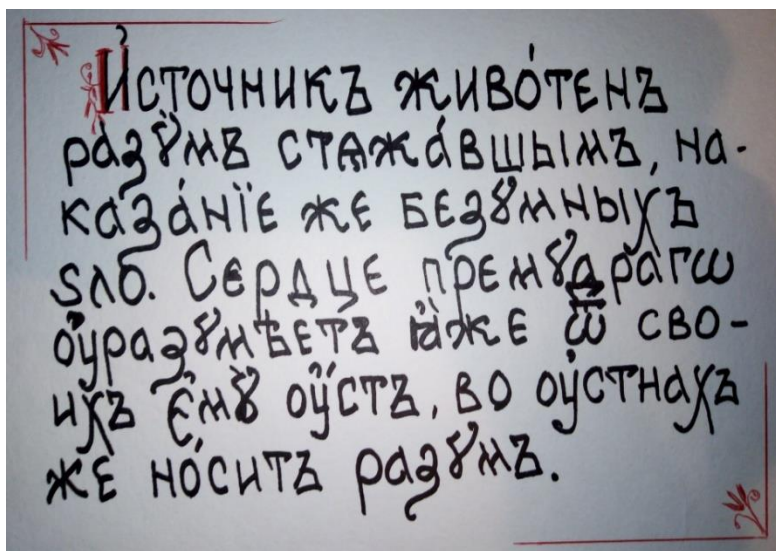 И҆сточникъ живо́тенъ
ра́зꙋмъ стѧжа́вшымъ, на-
каза́нїе же безꙋмныхъ
ѕло. Сердце премꙋдрагѡ
оу҆разꙋмѣетъ ꙗ҆̀же ѿ сво-
ихъ є҆мꙋ̀ оу҆́стъ, во оу҆стнахъ
же но́ситъ разꙋмъ.